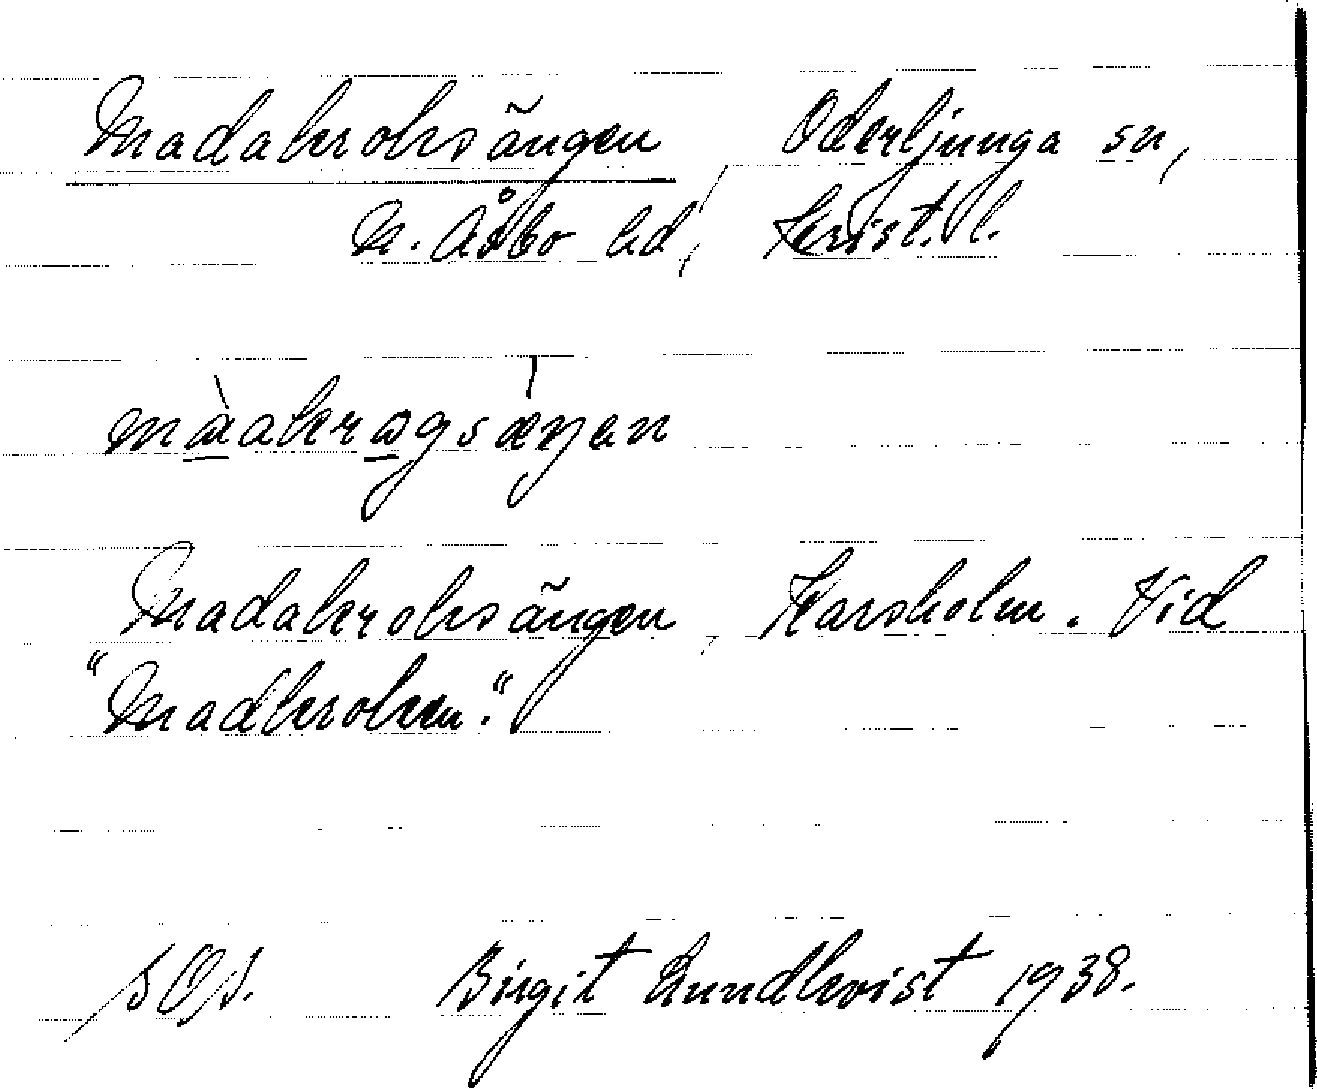 Madakroksängen Oderljunga sn,
N. Åsbo hd, Krist. l.
màakrɔgsæŋən
Madakroksängen, Karsholm. Vid
"Madkroken".
Birgit Lundkvist 1938.